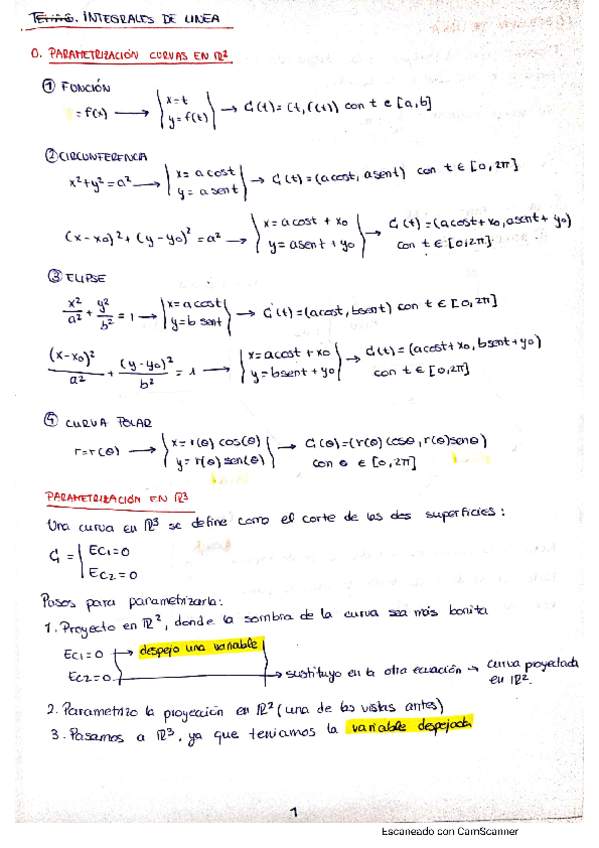 INTEGRALES DE LINEA
0. PARAMETRIZACIÓN CURVAS EN R²
① FONCIÓN
= f(x) → { x = t
y = f(t) } → G(t) = (t, f(t)) con t e [a, b]
② CIRCUNFERENCIA
x² + y² = a² → { x = a cost
y = a sent } → G(t) = (acost, asent) con t ∈ [0, 2π]
(x - x0)² + (y - y0)² = a² → { x = a cost + x0
y = asent + y0 } → G(t) = (acost + x0, asent + y0)
con t ∈ [0, 2π]
③ ELIPSE
x²/a² + y²/b² = 1 → { x = a cost
y = b sent } → G(t) = (acost, bsent) con t ∈ [0, 2π]
(x - x0)²/a² + (y - y0)²/b² = 1 → { x = acost + x0
y = bsent + y0 } → G(t) = (acost + x0, bsent + y0)
con t ∈ [0, 2π]
④ CURVA POLAR
r = r(θ) → { x = r(θ) cos(θ)
y = r(θ) sen(θ) } → G(θ) = (r(θ) cosθ, r(θ) senθ)
con θ ∈ [0, 2π]
PARAMETRIZACIÓN EN R³
Una curva en R³ se define como el corte de las dos superficies:
G = { EC1 = 0
EC2 = 0
Pasos para parametrizarla:
1. Proyecto en R², donde la sombra de la curva sea más bonita
EC1 = 0 → despejo una variable
EC2 = 0 → sustituyo en la otra ecuación → curva proyectada
en R².
2. Parametrizo la proyección en R² (una de las vistas antes)
3. Pasamos a R³, ya que teniamos la variable despejada
1
Escaneado con CamScanner